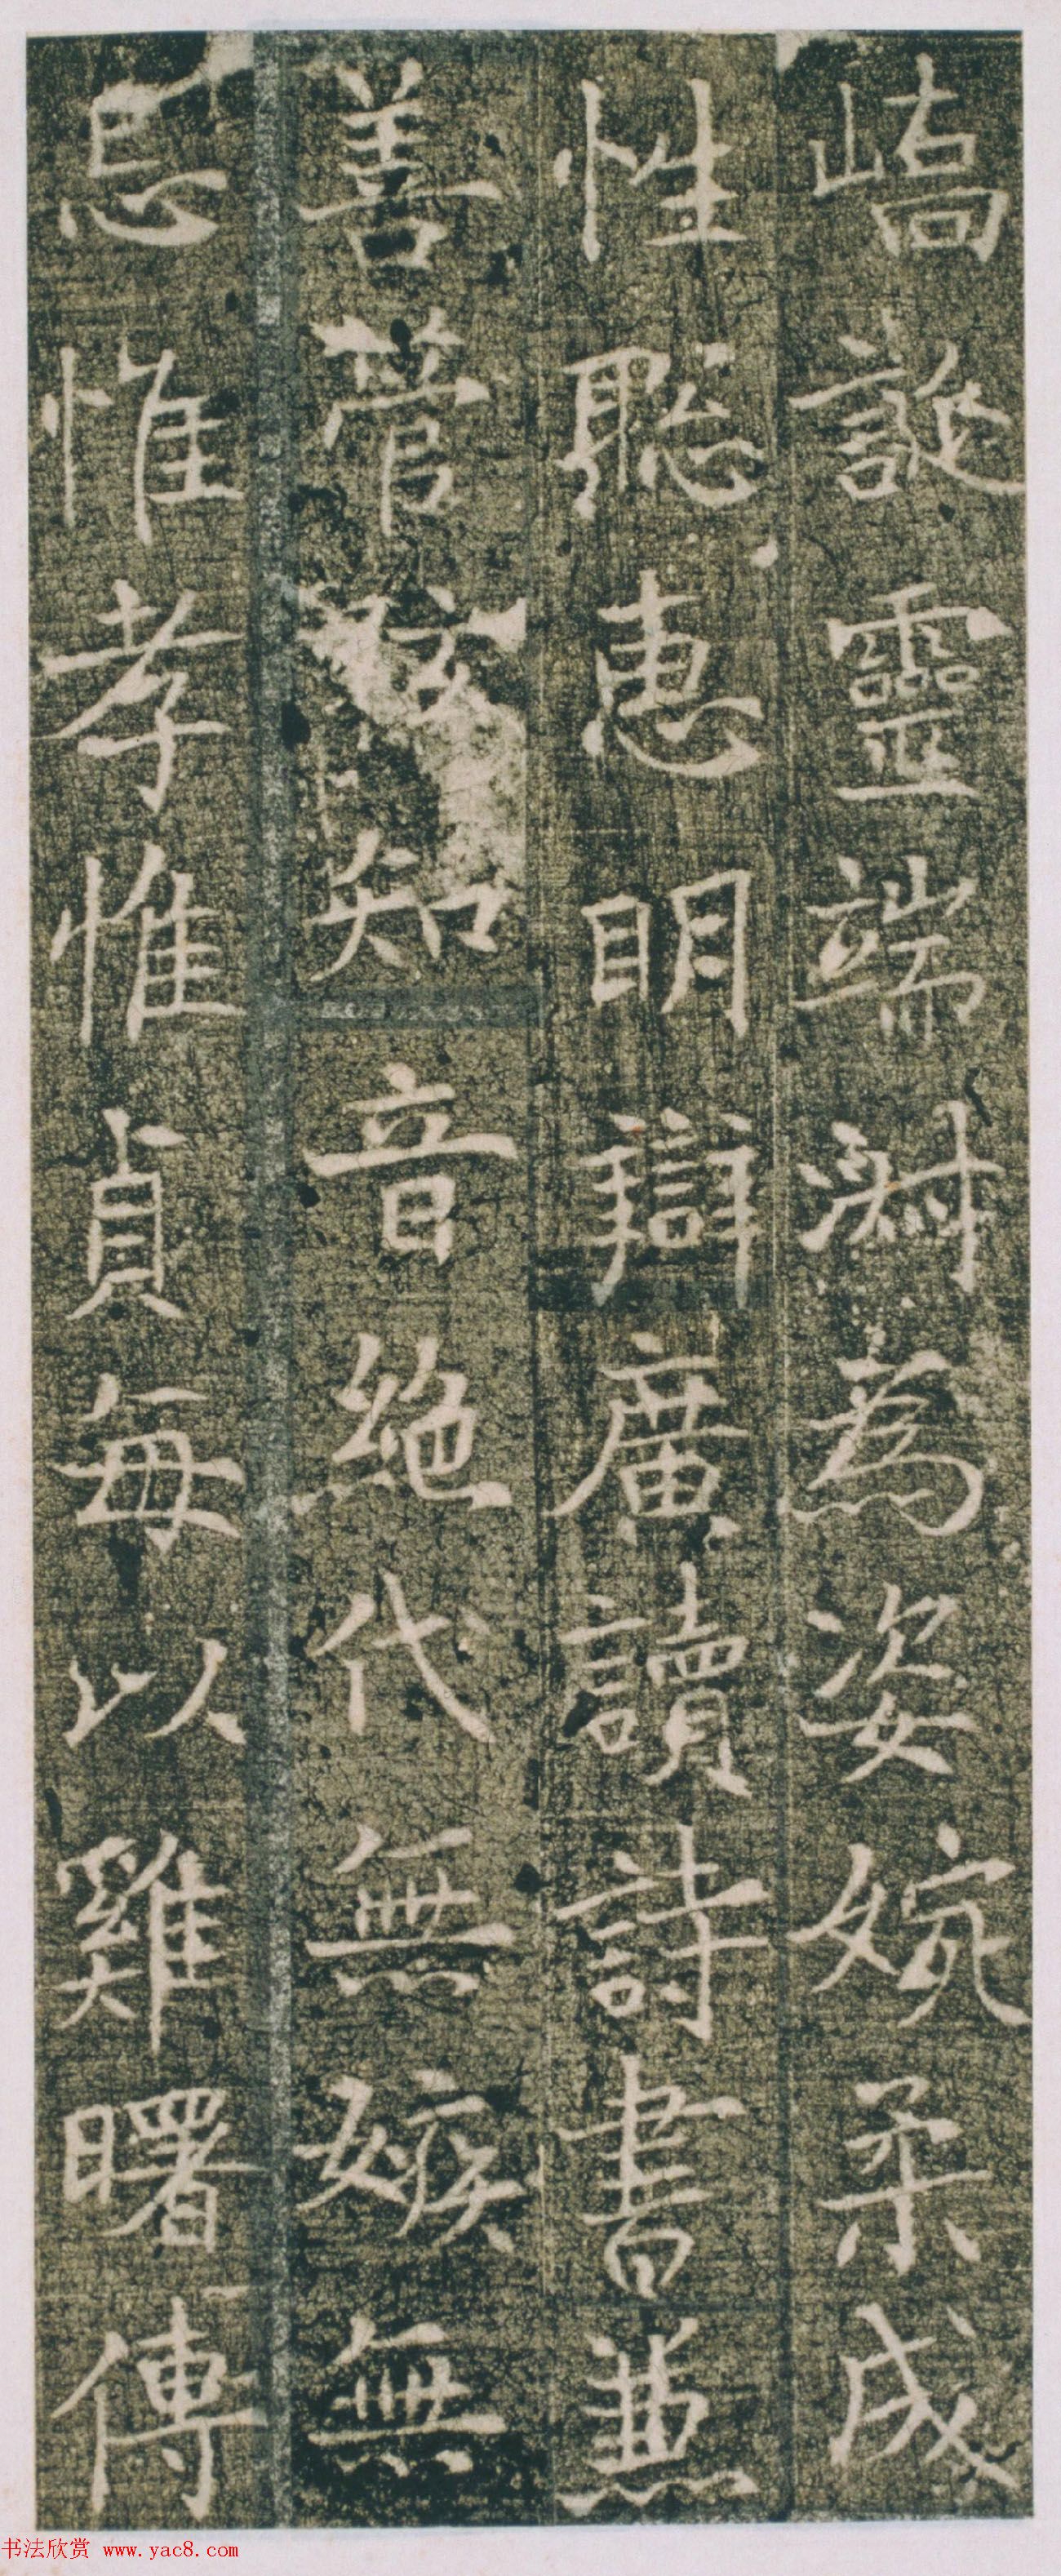 嶠誕靈端尉為姿婉柔成
性聰惠明辯廣讀詩書兼
善管知音絕代無嫉無
忌惟孝惟貞每以雞曙傳
书法欣赏 www.yac8.com